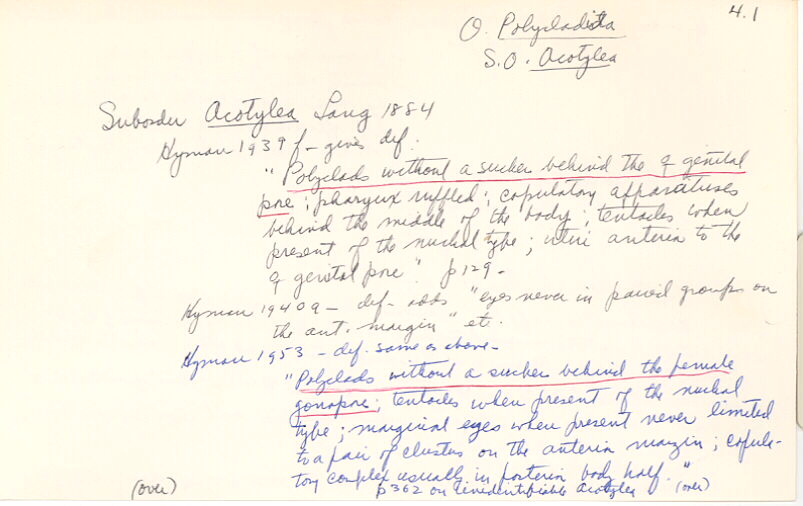 4.1
O. Polycladida
S.O. Acotylea
Suborder Acotylea Lang 1884
Hyman 1939 f - gives def.
"Polyclads without a sucker behind the ♀ genital
pore; pharynx ruffled; copulatory apparatuses
behind the middle of the body; tentacles when
present of the nuchal type; uteri anterior to the
♀ genital pore" p129-
Hyman 1940a - def - adds "eyes never in paired groups on
the ant. margin" etc.
Hyman 1953 - def. same as above -
"Polyclads without a sucker behind the female
gonopore; tentacles when present of the nuchal
type; marginal eyes when present never limited
to a pair of clusters on the anterior margin; copula-
tory complex usually in posterior body half."
p362 on unidentifiable Acotylea (over)
(over)